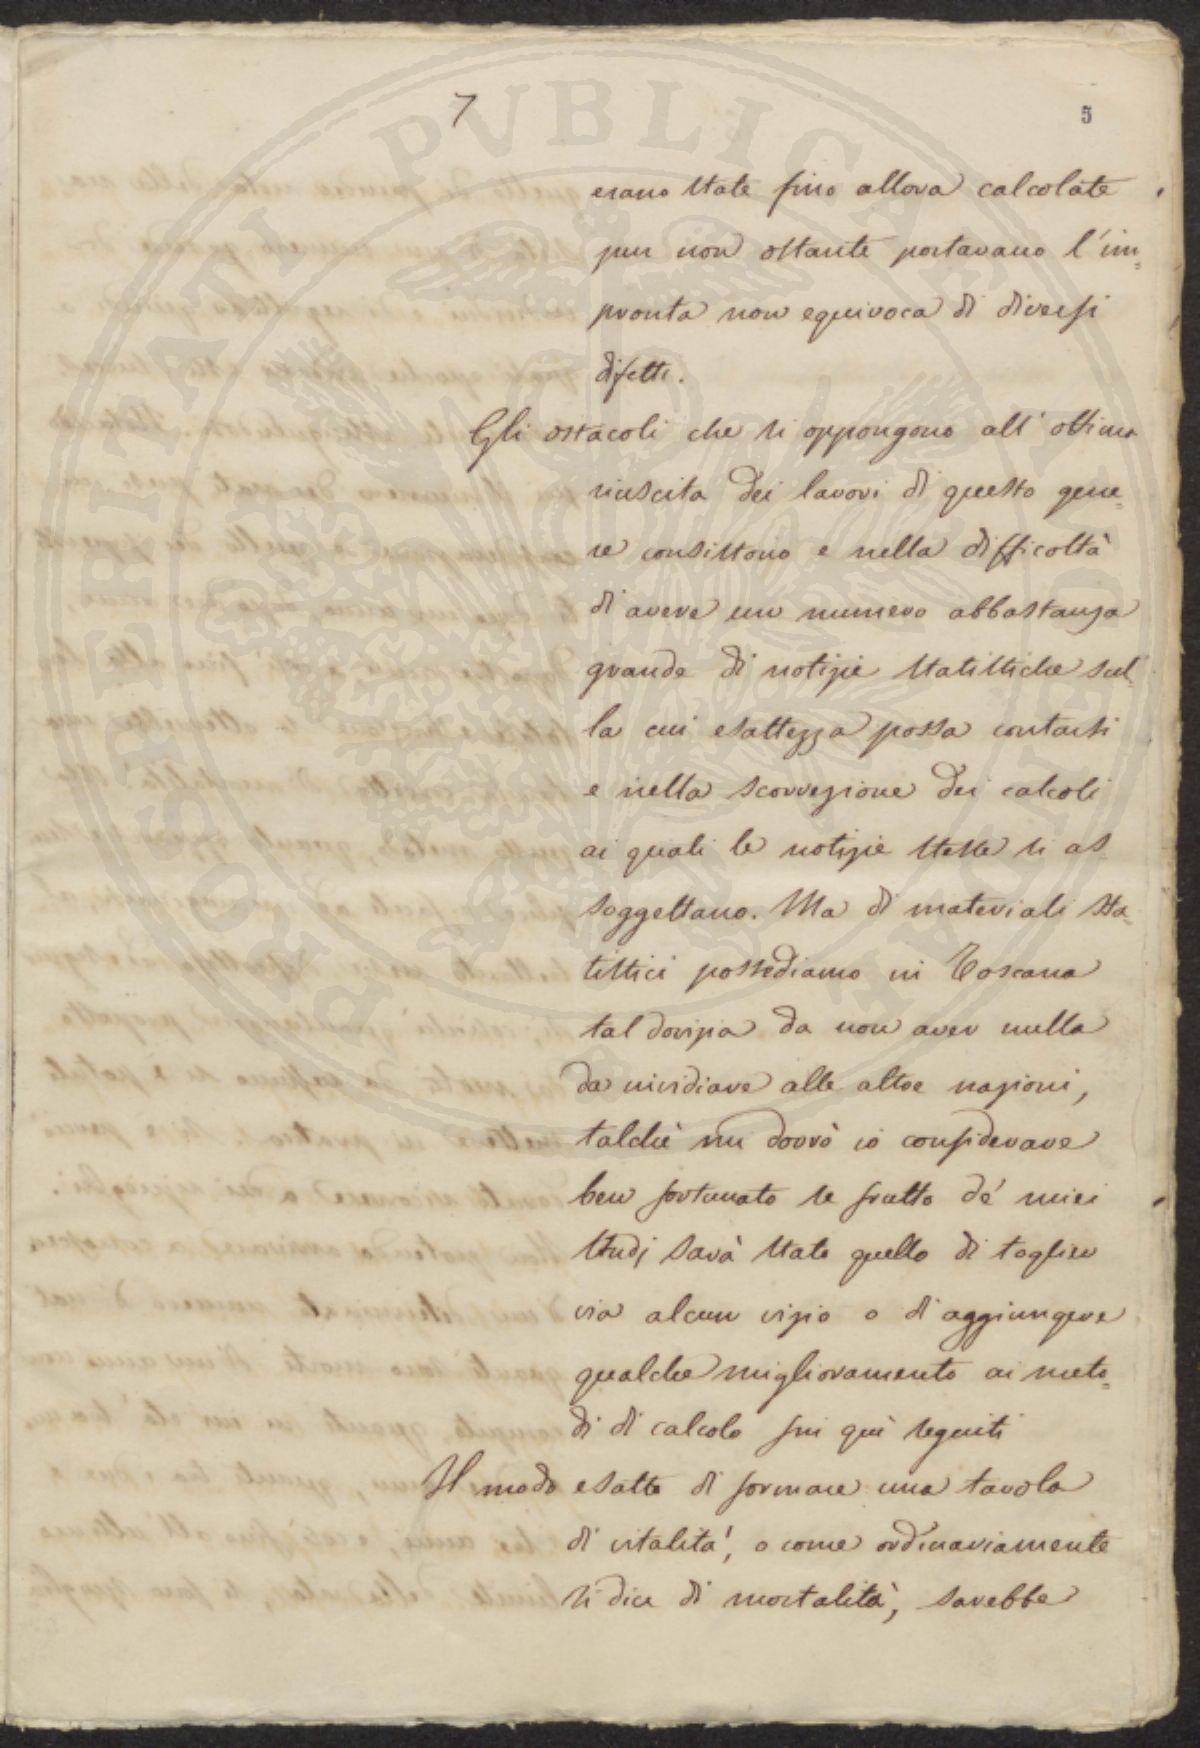 7
5
erano state fino allora calcolate
pur non ostante portavano l'im=
pronta non equivoca di diversi
difetti.
Gli ostacoli che si oppongono all' ottima
riuscita dei lavori di questo gene=
re consistono e nella difficoltà
di avere un numero abbastanza
grande di notizie statistiche sul=
la cui esattezza possa contarsi
e nella scorrezione dei calcoli
ai quali le notizie stesse si as=
soggettano. Ma di materiali sta=
tistici possediamo in Toscana
tal dovizia da non aver nulla
da invidiare alle altre nazioni,
talchè mi dovrò io considerare
ben fortunato se frutto de' miei
studj sarà stato quello di toglier
via alcun vizio o di aggiungere
qualche miglioramento ai meto=
di di calcolo fin quì seguiti
Il modo esatto di formare una tavola
di vitalita', o come ordinariamente
si dice di mortalità, sarebbe
PROSPERITATI PVBLICAE